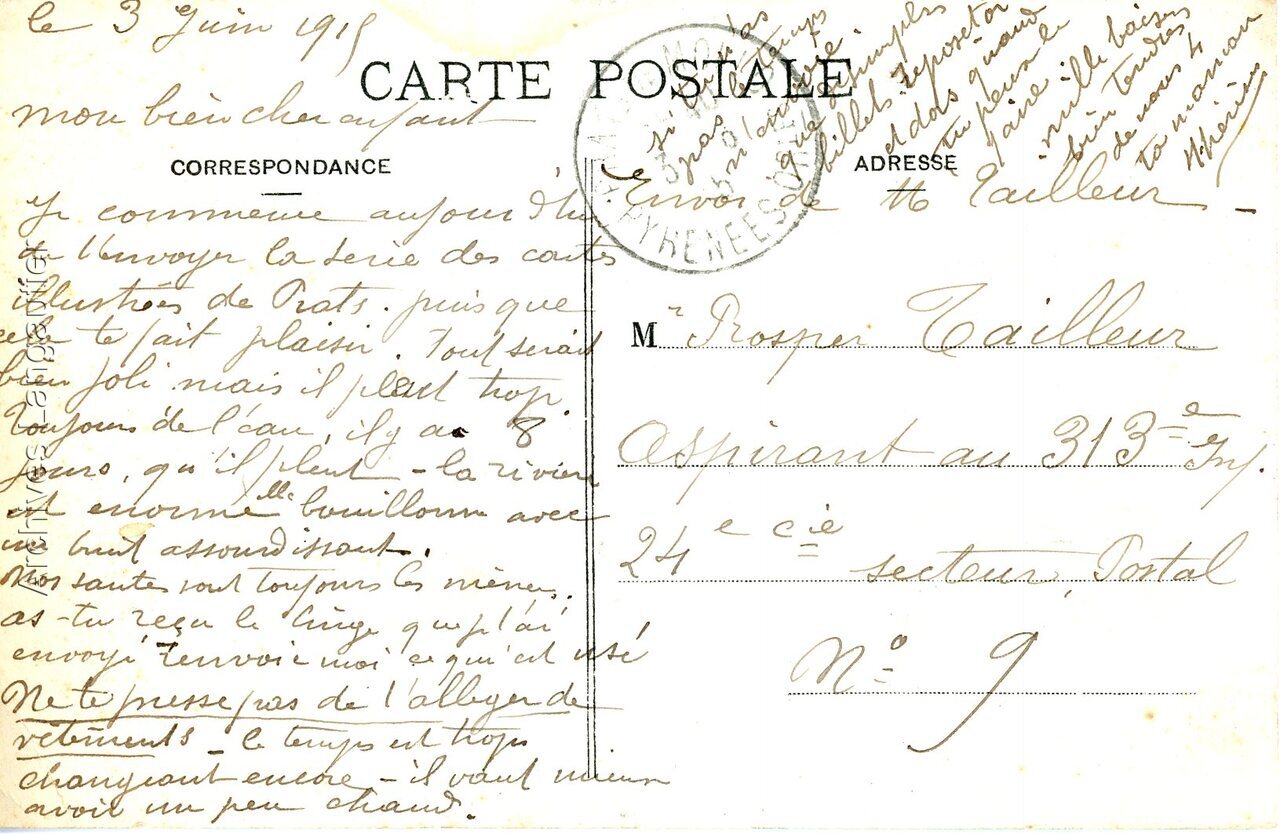 le 3 Juin 1915
CARTE POSTALE
mon bien cher enfant
CORRESPONDANCE
Je commence aujourd'hui
de t'Envoyer la serie des cartes
illustrées de Prats. puis que
cela te fait plaisir. Tout serait
bien joli mais il pleut trop
Toujours de l'eau, il y a 8
jours, qu'il pleut - la rivière
est enorme elle bouillonne avec
un bruit assourdissant.
Nos santés sont toujours les mêmes.
as-tu reçu le linge que j't'ai
envoyé Renvoie moi ce qui est usé
Ne te presse pas de t'alleger de
vêtements - le temps est trop
changeant encore - il vaut mieux
avoir un peu chaud.
si tu n'as
pas le temps
n'envoie
que de simples
billets. Repose toi
et dors quand
tu peux le
faire. mille baisers
bien tendres
de nous 4
ta maman
PYRENEES ORIENT
ADRESSE
Envoi de M Tailleur -
Mr Prosper Tailleur
Aspirant au 313e Inf.
24e cie secteur Postal
No 9
Archives-augustijner